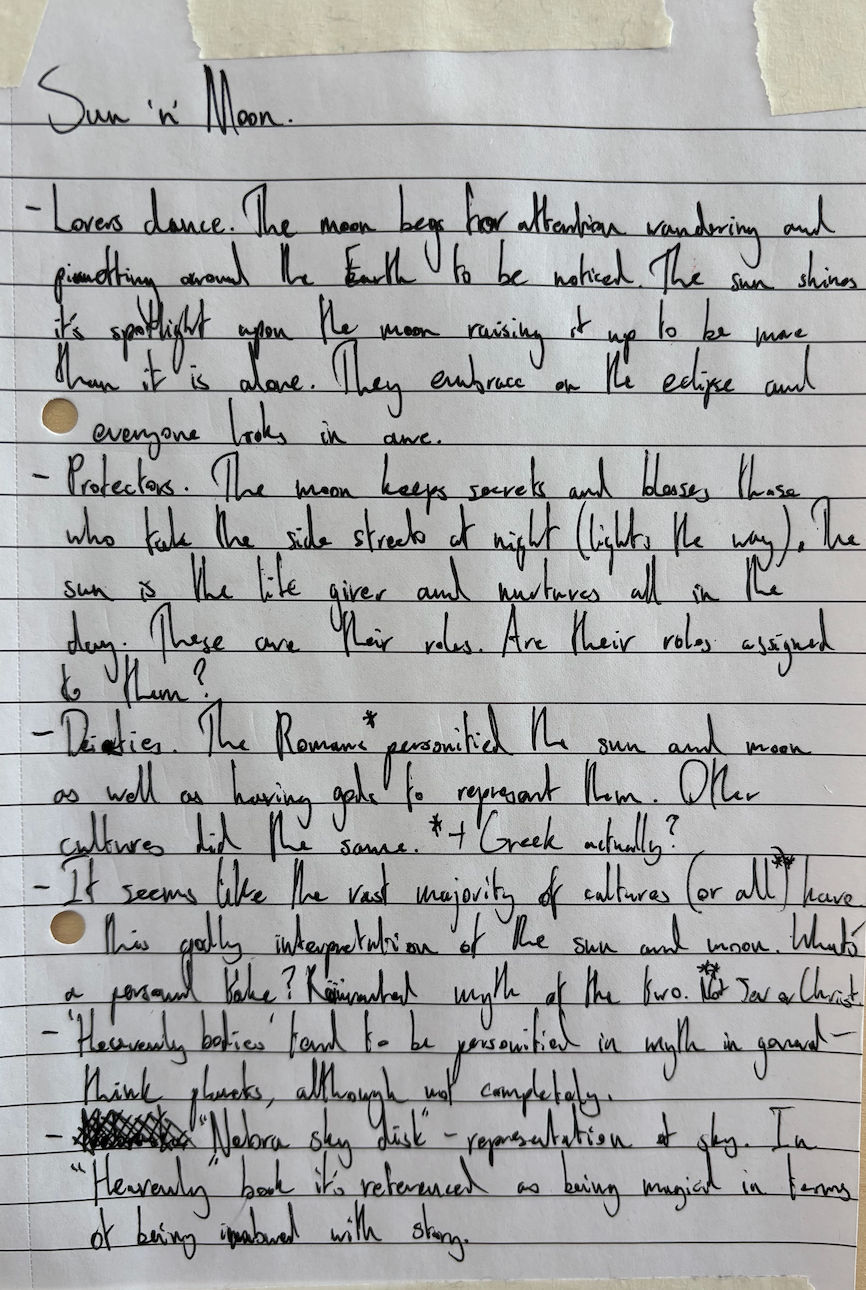 Sun 'n' Moon.
- Lovers dance. The moon begs for attention wandering and
pirouetting around the Earth to be noticed. The sun shines
it's spotlight upon the moon raising it up to be more
than it is alone. They embrace on the eclipse and
everyone looks in awe.
- Protectors. The moon keeps secrets and blesses those
who take the side streets at night (lights the way). The
sun is the life giver and nurtures all in the
day. These are their roles. Are their roles assigned
to them?
- Deities. The Romans* personified the sun and moon
as well as having gods to represent them. Other
cultures did the same. *+ Greek actually?
- It seems like the vast majority of cultures (or all)** have
this godly interpretation of the sun and moon. What's
a personal take? Reinvented myth of the two. **Not Jew or Christ.
- 'Heavenly bodies' tend to be personified in myth in general -
think planets, although not completely.
- "Nebra sky disk" - representation of sky. In
"Heavenly" book it's referenced as being magical in terms
of being imbued with story.